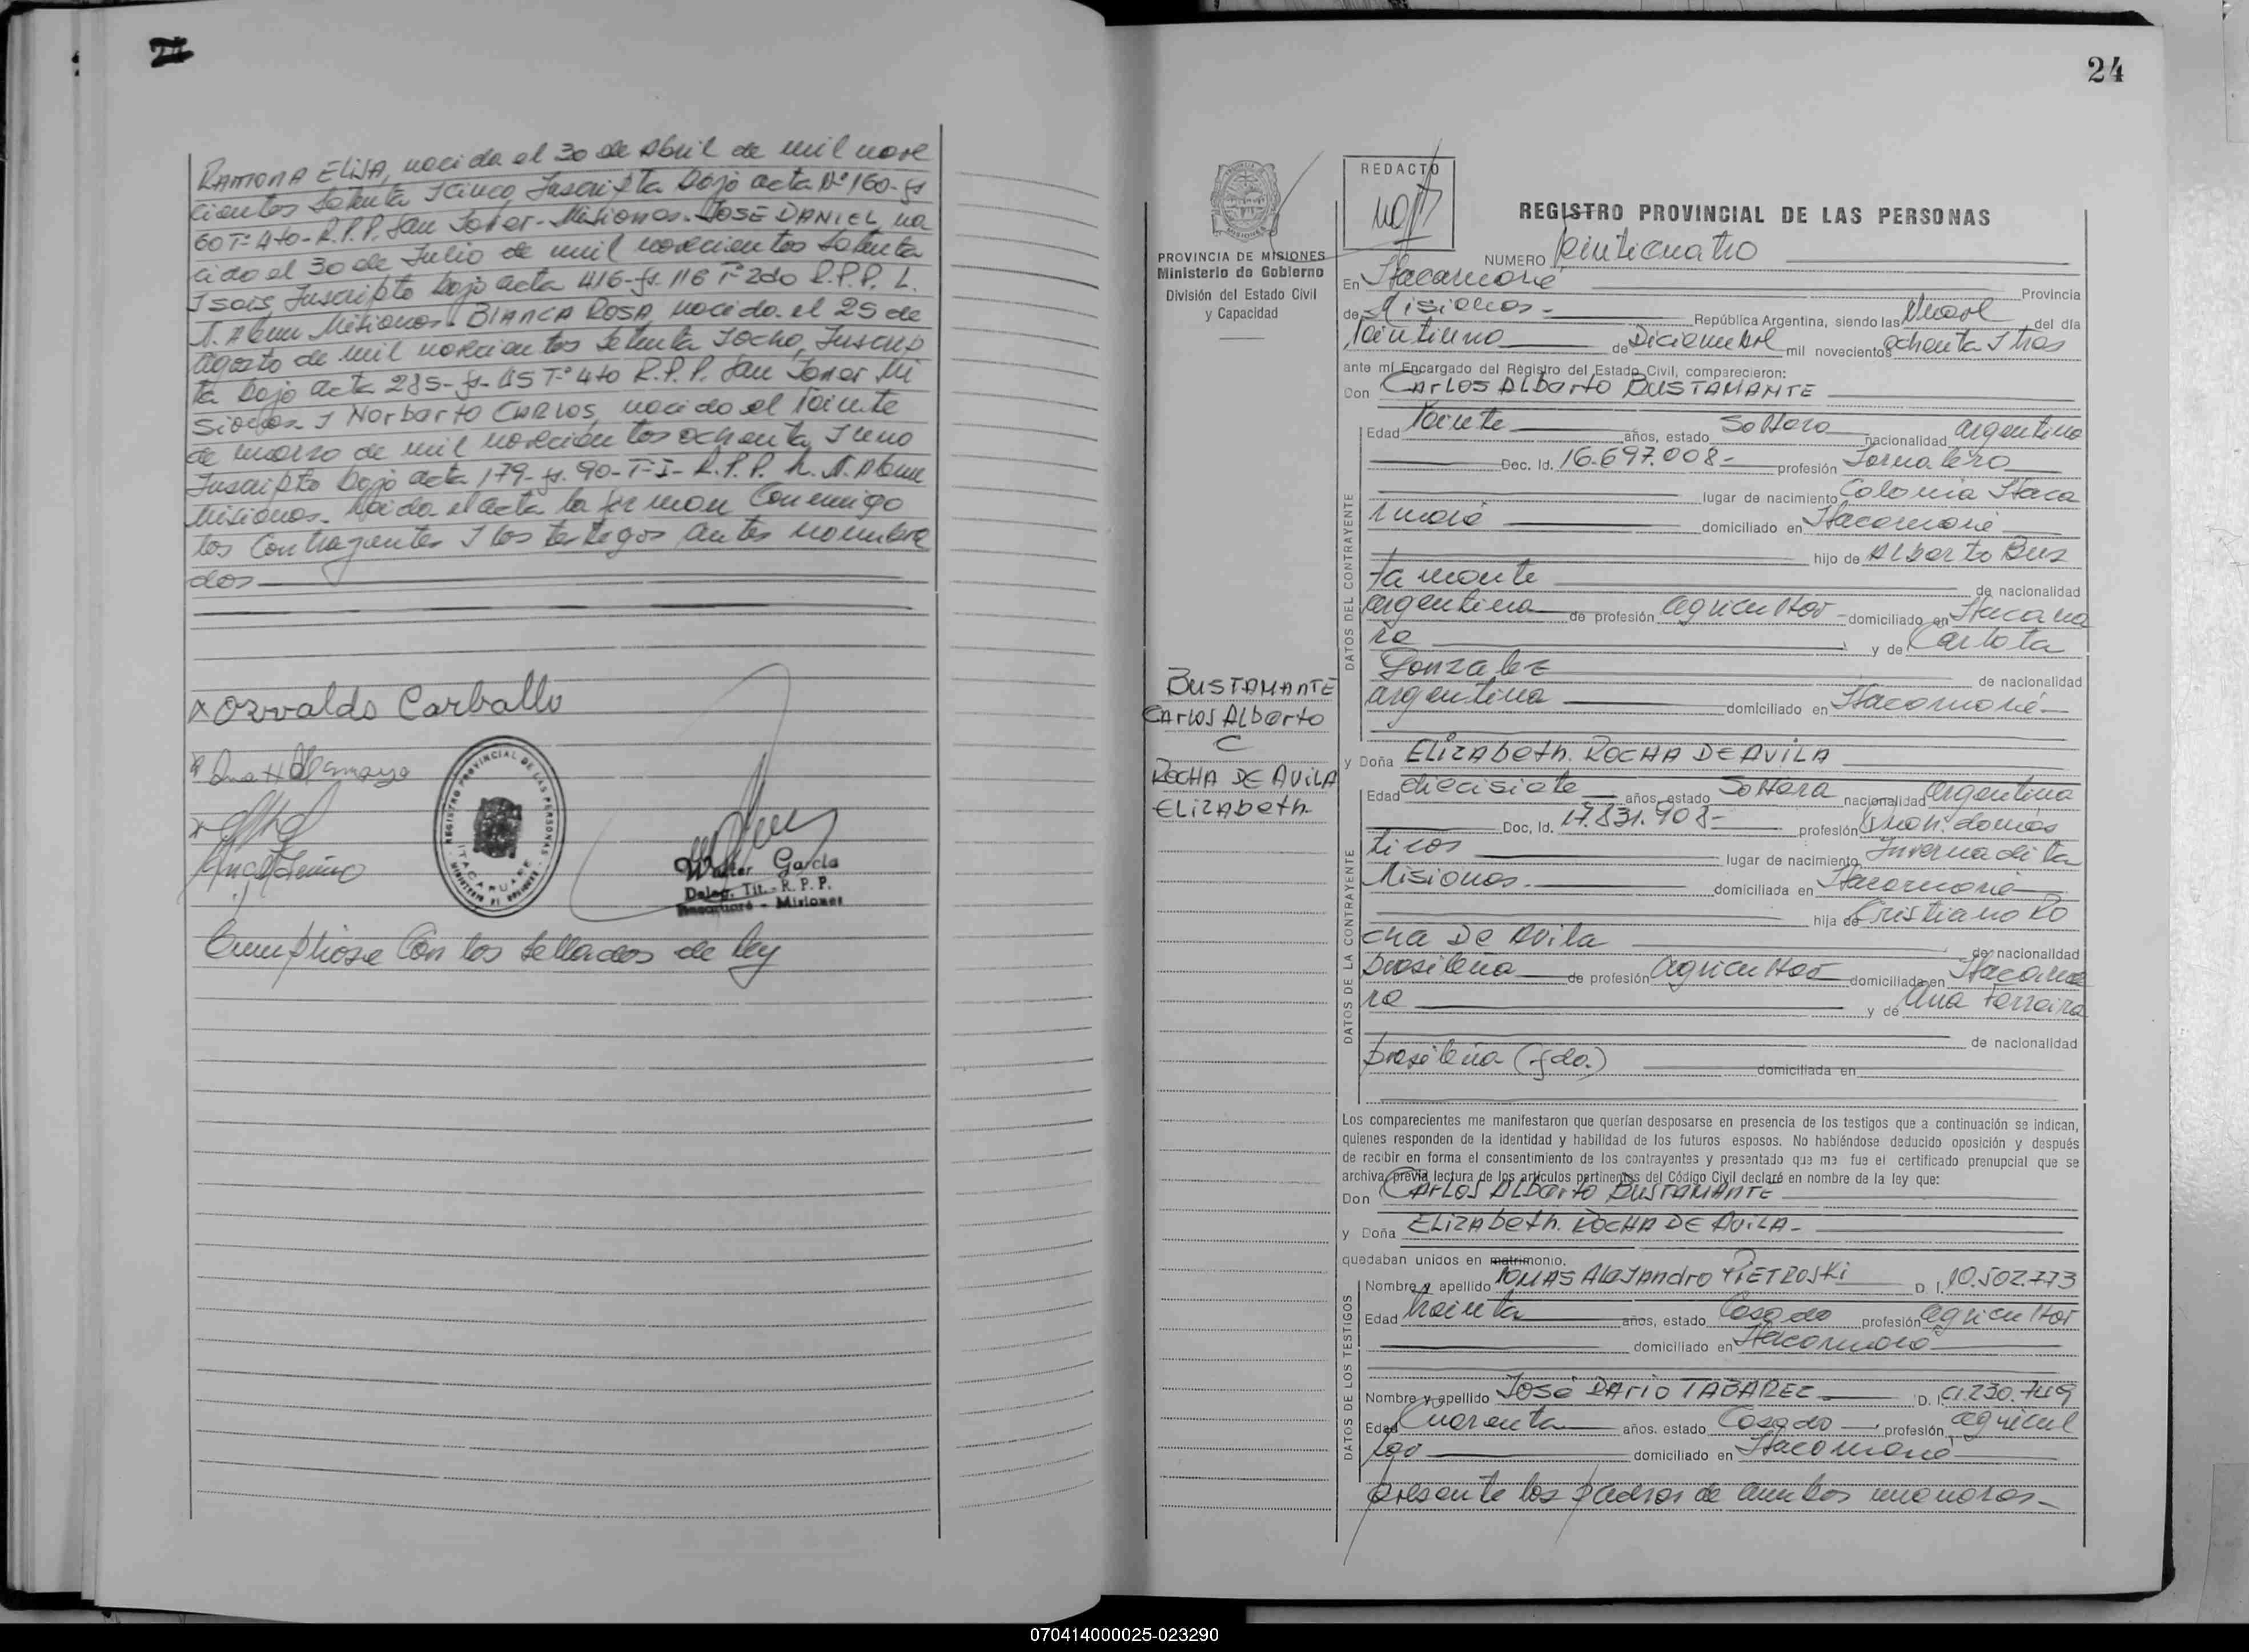 RAMONA ELISA, nacida el 30 de Abril de mil nove
cientos setenta y cinco, Inscripta bajo acta Nº 160-fs
60 Tº 4to - R.P.P. San Javier - Misiones. JOSÉ DANIEL, na
cido el 30 de Julio de mil novecientos setenta
y seis, Inscripto bajo acta 416-fs. 116 Tº 2do R.P.P. L.
N. Alem Misiones. BLANCA ROSA, nacida el 25 de
Agosto de mil novecientos setenta y ocho, Inscrip
ta bajo acta 285-fs- Tº 4to R.P.P. San Javier Mi
siones y Norberto CARLOS, nacido el veinte
de marzo de mil novecientos ochenta y uno
Inscripto bajo acta 179-fs. 90-T-I- R.P.P. L. N. Alem
Misiones. Leida el acta la firman Conmigo
los Contrayentes y los testigos antes nombra
dos
x Osvaldo Carballo
REGISTRO PROVINCIAL DE LAS PERSONAS
ITACARUARE
Walter García
Deleg. Tit. - R. P. P.
Itacaruaré - Misiones
Cumpliose Con los sellados de ley
24
REDACTO
PROVINCIA DE MISIONES
Ministerio de Gobierno
División del Estado Civil
y Capacidad
BUSTAMANTE
CARLOS ALberto
C
ROCHA DE AVILA
ELIZAbeth.
REGISTRO PROVINCIAL DE LAS PERSONAS
NUMERO Veinticuatro
En Itacaruaré Provincia
de Misiones - República Argentina, siendo las nueve del día
veintiuno de Diciembre mil novecientos ochenta y tres
ante mí Encargado del Registro del Estado Civil, comparecieron:
Don CARLOS ALberto BUSTAMANTE
Edad veinte años, estado Soltero nacionalidad argentino
Doc. Id. 16.697.008- profesión Jornalero
lugar de nacimiento Colonia Itaca
ruaré domiciliado en Itacaruaré
hijo de ALberto Bus
tamante de nacionalidad
argentina de profesión agricultor domiciliado en Itacarua
ré y de Carlota
Gonzalez de nacionalidad
argentina domiciliado en Itacaruaré
y Doña ELIZAbeth. ROCHA DE AVILA
Edad diecisiete años, estado Soltera nacionalidad argentina
Doc, Id. 17.831.908- profesión Queh. domés
ticos lugar de nacimiento Invernadita
Misiones. domiciliada en Itacaruaré
hija de Cristiano Ro
cha De Avila de nacionalidad
brasileña de profesión agricultor domiciliada en Itacarua
ré y de Ana Ferreira
de nacionalidad
brasileña (fda.) domiciliada en
Los comparecientes me manifestaron que querían desposarse en presencia de los testigos que a continuación se indican,
quienes responden de la identidad y habilidad de los futuros esposos. No habiéndose deducido oposición y después
de recibir en forma el consentimiento de los contrayentes y presentado que me fue el certificado prenupcial que se
archiva, previa lectura de los artículos pertinentes del Código Civil declaré en nombre de la ley que:
Don CARLOS ALberto BUSTAMANTE
y Doña ELIZAbeth. ROCHA DE AVILA-
quedaban unidos en matrimonio.
Nombre y apellido TOMAS ALEJANdro PIETROSKI D. I. 10.502.773
Edad treinta años, estado Casado profesión agricultor
domiciliado en Itacaruaré
Nombre y apellido JOSÉ DARIO TABAREZ D. I.
Edad Cuarenta años, estado Casado profesión agricul
tor domiciliado en Itacaruaré
presente los padres de ambos menores-
DATOS DEL CONTRAYENTE
DATOS DE LA CONTRAYENTE
DATOS DE LOS TESTIGOS
070414000025-023290